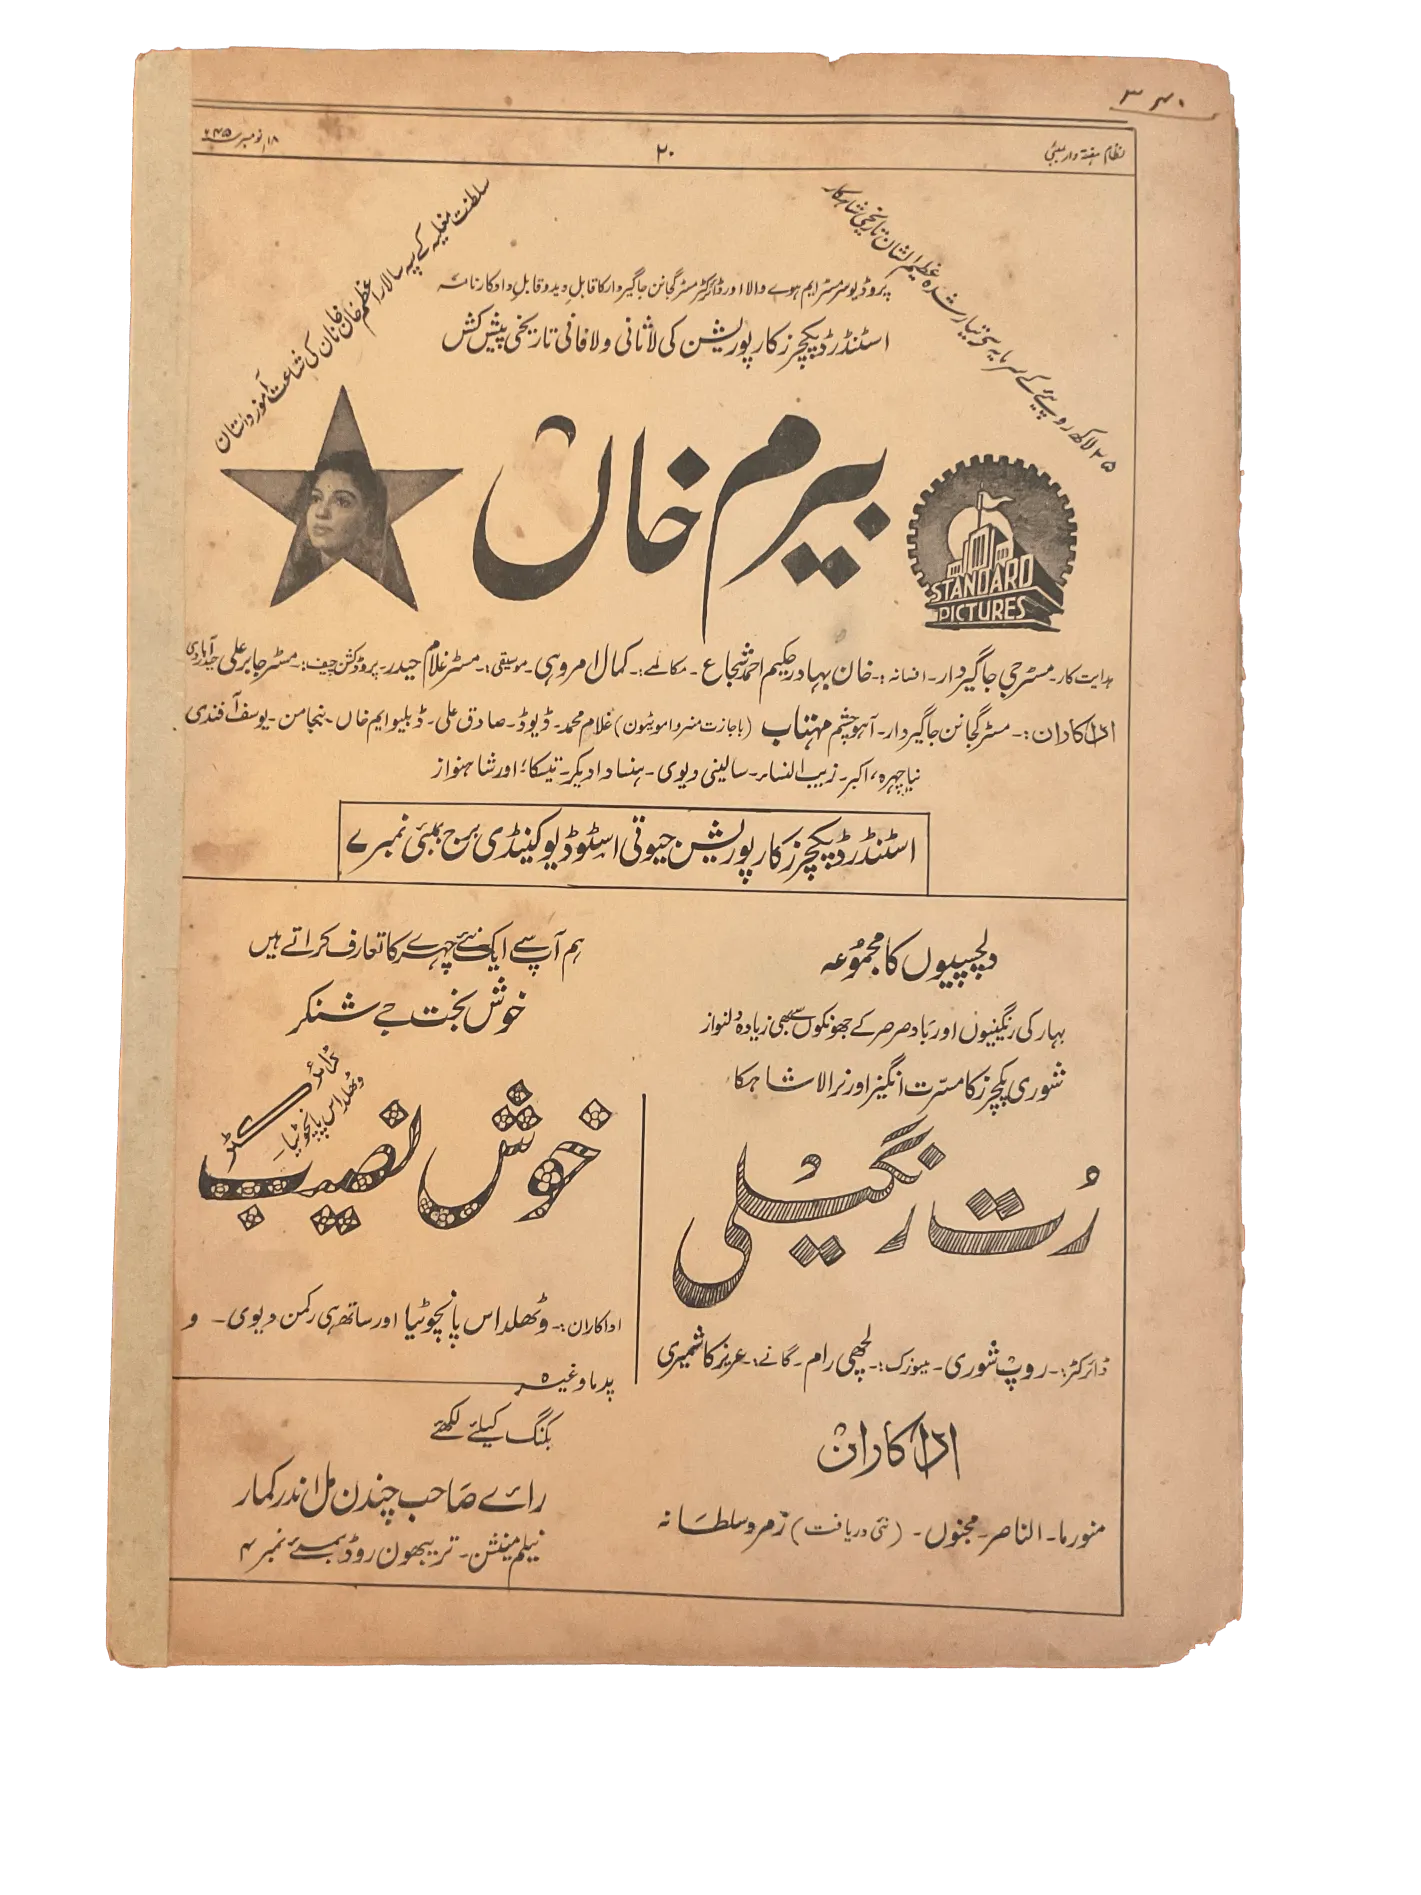 ۳۴۰
نظام ہفتہ وار بمبئی
۲۰
۱۸ نومبر ۴۵ء
۲۵ لاکھ روپیئے کے سرمایہ سے تیار شدہ عظیم الشان تاریخی شاہکار
سلطنت مغلیہ کے سپہ سالار اعظم خان خاناں کی شجاعت آموز داستان
پروڈیوسر مسٹر ایم ہوے والا اور ڈائرکٹر مسٹر گجانن جاگیردار کا قابلِ دید و قابلِ داد کارنامہ
اسٹنڈرڈ پکچرز کارپوریشن کی لاثانی و لافانی تاریخی پیش کش
بیرم خاں
STANDARD
PICTURES
ہدایت کار۔ مسٹر جی جاگیردار۔ افسانہ:۔ خان بہادر حکیم احمد شجاع۔ مکالمے:۔ کمال امروہی۔ موسیقی:۔ مسٹر غلام حیدر۔ پروڈکشن چیف:۔ مسٹر جابر علی حیدرآبادی
اداکاران:۔ مسٹر گجانن جاگیردار۔ آہو چشم مہتاب (باجازت منروا مووِیٹون) غلام محمد۔ ڈیوڈ۔ صادق علی۔ ڈبلیو ایم خاں۔ بنجامن۔ یوسف آفندی
نیا چہرہ، اکبر۔ زیب النساء۔ سالینی دیوی۔ ہنسا دادیکر۔ تیسکا؛ اور شاہنواز
اسٹنڈرڈ پکچرز کارپوریشن جیوتی اسٹوڈیو کینڈی برج بمبئی نمبر ۷
دلچسپیوں کا مجموعہ
بہار کی رنگینیوں اور بادِ صرصر کے جھونکوں سے بھی زیادہ دلنواز
شوری پکچرز کا مسرّت انگیز اور نرالا شاہکا
رُت رنگیلی
ڈائرکٹر:۔ روپ شوری۔ میوزک:۔ لچھی رام۔ گانے:۔ عزیز کاشمیری
اداکاران
منورما۔ الناصر۔ مجنوں۔ (نئی دریافت) زمرد سلطانہ
ہم آپ سے ایک نئے چہرے کا تعارف کراتے ہیں
خوش بخت جے شنکر
خوش نصیب
ڈائرکٹر
وٹھلداس پانچوٹیا۔
اداکاران:۔ وٹھلداس پانچوٹیا اور ساتھ ہی رکمن دیوی۔ و
پدما وغیرہ
بکنگ کیلئے لکھئے
رائے صاحب چندن مل اندر کمار
نیلم مینشن۔ تریبھون روڈ بمبئے نمبر ۴